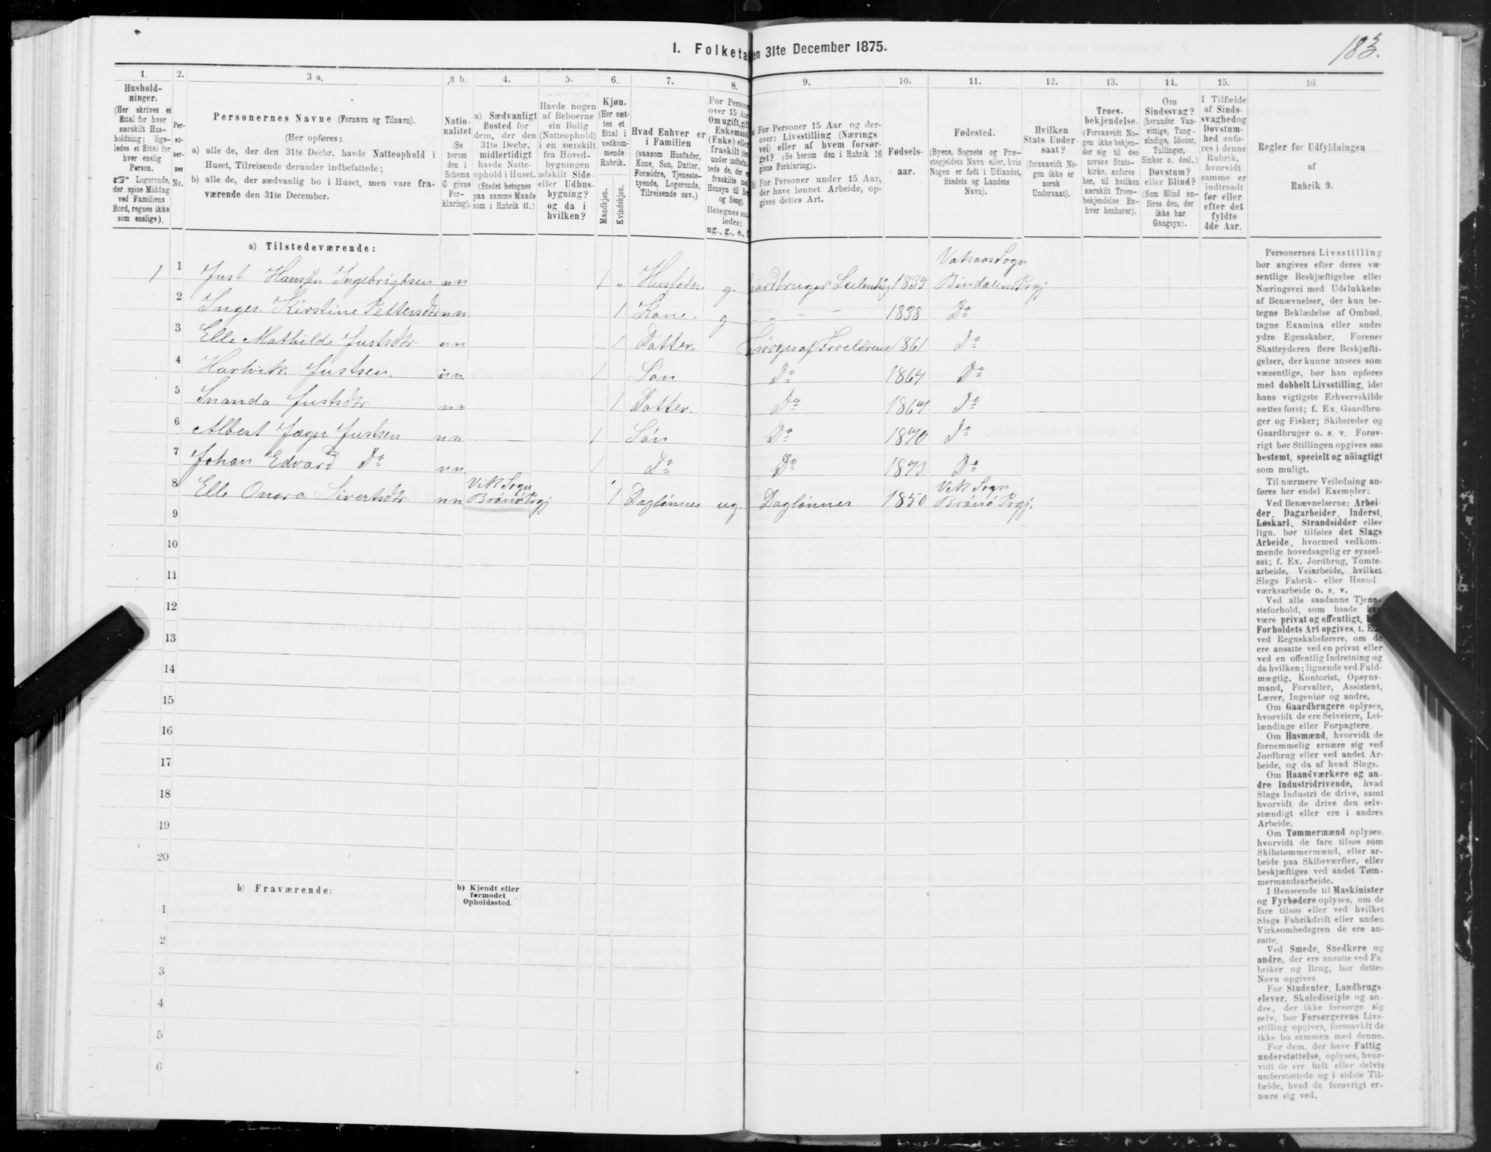 I. Folketa en 31te December 1875.
183.
1. 2. 3 a. 3 b. 4. 5. 6. 7. 8. 9. 10. 11. 12. 13. 14. 15. 16.
Hushold-
ninger.
(Her skrives et
Ettal for hver
særskilt Hus-
holdning; lige-
ledes et Ettal for
hver enslig
Person.
Logerende,
der spise Middag
ved Familiens
Bord, regnes ikke
som enslige).
Per-
so-
ner-
nes
No.
Personernes Navne (Fornavn og Tilnavn).
(Her opføres:
a) alle de, der den 31te Decbr. havde Natteophold i
Huset, Tilreisende derunder indbefattede;
b) alle de, der sædvanlig bo i Huset, men vare fra-
værende den 31te December.
Natio-
nalitet
(Se
herom
den i
Schema
C givne
For-
klaring).
a) Sædvanligt
Bosted for
dem, der den
31te Decbr.
midlertidigt
havde Natte-
ophold i Huset.
(Stedet betegnes
paa samme Maade
som i Rubrik 11.)
Havde nogen
af Beboerne
sin Bolig
(Natteophold)
i en særskilt
fra Hoved-
bygningen
adskilt Side-
eller Udhus-
bygning?
og da i
hvilken?
Kjøn.
(Her sæt-
tes et
Ettal i
vedkom-
mende
Rubrik.
Mandkjøn.
Kvindekjøn.
Hvad Enhver er
i Familien
(saasom Husfader,
Kone, Søn, Datter,
Forældre, Tjeneste-
tyende, Logerende,
Tilreisende osv.)
For Person
over 15 A
Om ugift, gift
Enkemand
(Enke) elle
fraskilt
under indbefa
tede de, der e
fraskilte
Hensyn til B
og Seng).
Betegnes
ledes:
ug., g., e.,
For Personer 15 Aar og der-
over: Livsstilling (Nærings
vei) eller af hvem forsør-
get? (Se herom den i Rubrik 16
givne Forklaring).
For Personer under 15 Aar,
der have lønnet Arbeide, op-
gives dettes Art.
Fødsels-
aar.
Fødested.
(Byens, Sognets og Præ-
stegjeldets Navn eller, hvis
Nogen er født i Udlandet,
Stedets og Landets
Navn).
Hvilken
Stats Under
saat?
(forsaavidt No-
gen ikke er
norsk
Undersaat).
Troes-
bekjendelse.
(Forsaavidt No-
gen ikke bekjen-
der sig til den
norske Stats-
kirke, anføres
her, til hvilken
særskilt Troes-
bekjendelse En-
hver henhører).
Om
Sindssvag?
(herunder Van-
vittige, Tung-
sindige, Idioter,
Tullinger,
Sinker o. desl.)
Døvstum?
eller Blind?
(Som Blind an-
føres den, der
ikke har
Gangsyn).
I Tilfælde
af Sinds-
svaghed og
Døvstum-
hed anfø-
res i denne
Rubrik,
hvorvidt
samme er
indtraadt
før eller
efter det
fyldte
4de Aar.
Regler for Udfyldningen
af
Rubrik 9.
a) Tilstedeværende:
Vatsaas Sogn
1 1 Just Hansen Ingebrigtsen nn 1 „ Husfader g. Gaardbruger Leilending 1839 Bindalens Prgj
2 Inger Kirstine Pettersdtr nn 1 Kone g 1838 Do
3 Elle Mathilde Justsdtr nn 1 Datter 1861 Do
4 Hartvik Justsen nn 1 Søn Do 1864 Do
5 Justsdtr nn 1 Datter. Do 1867 Do
6 Albert Jæger Justsen nn 1 Søn Do 1870 Do
7 Johan Edvard Do nn 1 Do Do 1873 Do
Vik Sogn Vik Sogn
8 Elle Sivertsdtr nn Brønø Prgj 1 Daglønnes ug. Daglønnes 1850 Brønø Prgj.
9
10
11
12
13
14
15
16
17
18
19
20
b) Fraværende:
b) Kjendt eller
formodet
Opholdssted.
1
2
3
4
5
6
Personernes Livsstilling
bør angives efter deres væ-
sentlige Beskjæftigelse eller
Næringsvei med Udelukkelse
af Benævnelser, der kun be-
tegne Beklædelse af Ombud,
tagne Examina eller andre
ydre Egenskaber. Forener
Skatteyderen flere Beskjæfti-
gelser, der kunne ansees som
væsentlige, bør han opføres
med dobbelt Livsstilling, idet
hans vigtigste Erhvervskilde
sættes først; f. Ex. Gaardbru-
ger og Fisker; Skibsreder og
Gaardbruger o. s. v. Forøv-
rigt bør Stillingen opgives saa
bestemt, specielt og nöiagtigt
som muligt.
Til nærmere Veiledning an-
føres her endel Exempler:
Ved Benævnelserne: Arbei-
der, Dagarbeider, Inderst,
Løskarl, Strandsidder eller
lign. bør tilføies det Slags
Arbeide, hvormed vedkom-
mende hovedsagelig er syssel-
sat; f. Ex. Jordbrug, Tomte-
arbeide, Veiarbeide, hvilket
Slags Fabrik- eller Haand-
værksarbeide o. s. v.
Ved alle saadanne Tjene-
steforhold, som baade
være privat og offentligt,
Forholdets Art opgives, t.
ved Regnskabsførere, om de
ere ansatte ved en privat eller
ved en offentlig Indretning og
da hvilken; lignende ved Fuld-
mægtig, Kontorist, Opsyns-
mand, Forvalter, Assistent,
Lærer, Ingeniør og andre.
Om Gaardbrugere oplyses,
hvorvidt de ere Selveiere, Lei-
lændinge eller Forpagtere.
Om Husmænd, hvorvidt de
fornemmelig ernære sig ved
Jordbrug eller ved andet Ar-
beide, og da af hvad Slags.
Om Haandværkere og an-
dre Industridrivende, hvad
Slags Industri de drive, samt
hvorvidt de drive den selv-
stændigt eller ere i andres
Arbeide.
Om Tømmermænd oplyses,
hvorvidt de fare tilsøs som
Skibstømmermænd, eller ar-
beide paa Skibsværfter, eller
beskjæftiges ved andet Tøm-
mermandsarbeide.
I Henseende til Maskinister
og Fyrbødere oplyses, om de
fare tilsøs eller ved hvilket
Slags Fabrikdrift eller anden
Virksomhedsgren de ere an-
satte.
Ved Smede, Snedkere og
andre, der ere ansatte ved Fa-
briker og Brug, bør dettes
Navn opgives.
For Studenter, Landbrugs-
elever, Skoledisciple og an-
dre, der ikke forsørge sig
selv, bør Forsørgerens Livs-
stilling opgives, forsaavidt de
ikke bo sammen med denne.
For dem, der have Fattig
understøttelse, oplyses, hvor-
vidt de ere helt eller delvis
understøttede og i sidste Til-
fælde, hvad de forøvrigt er-
nære sig ved.